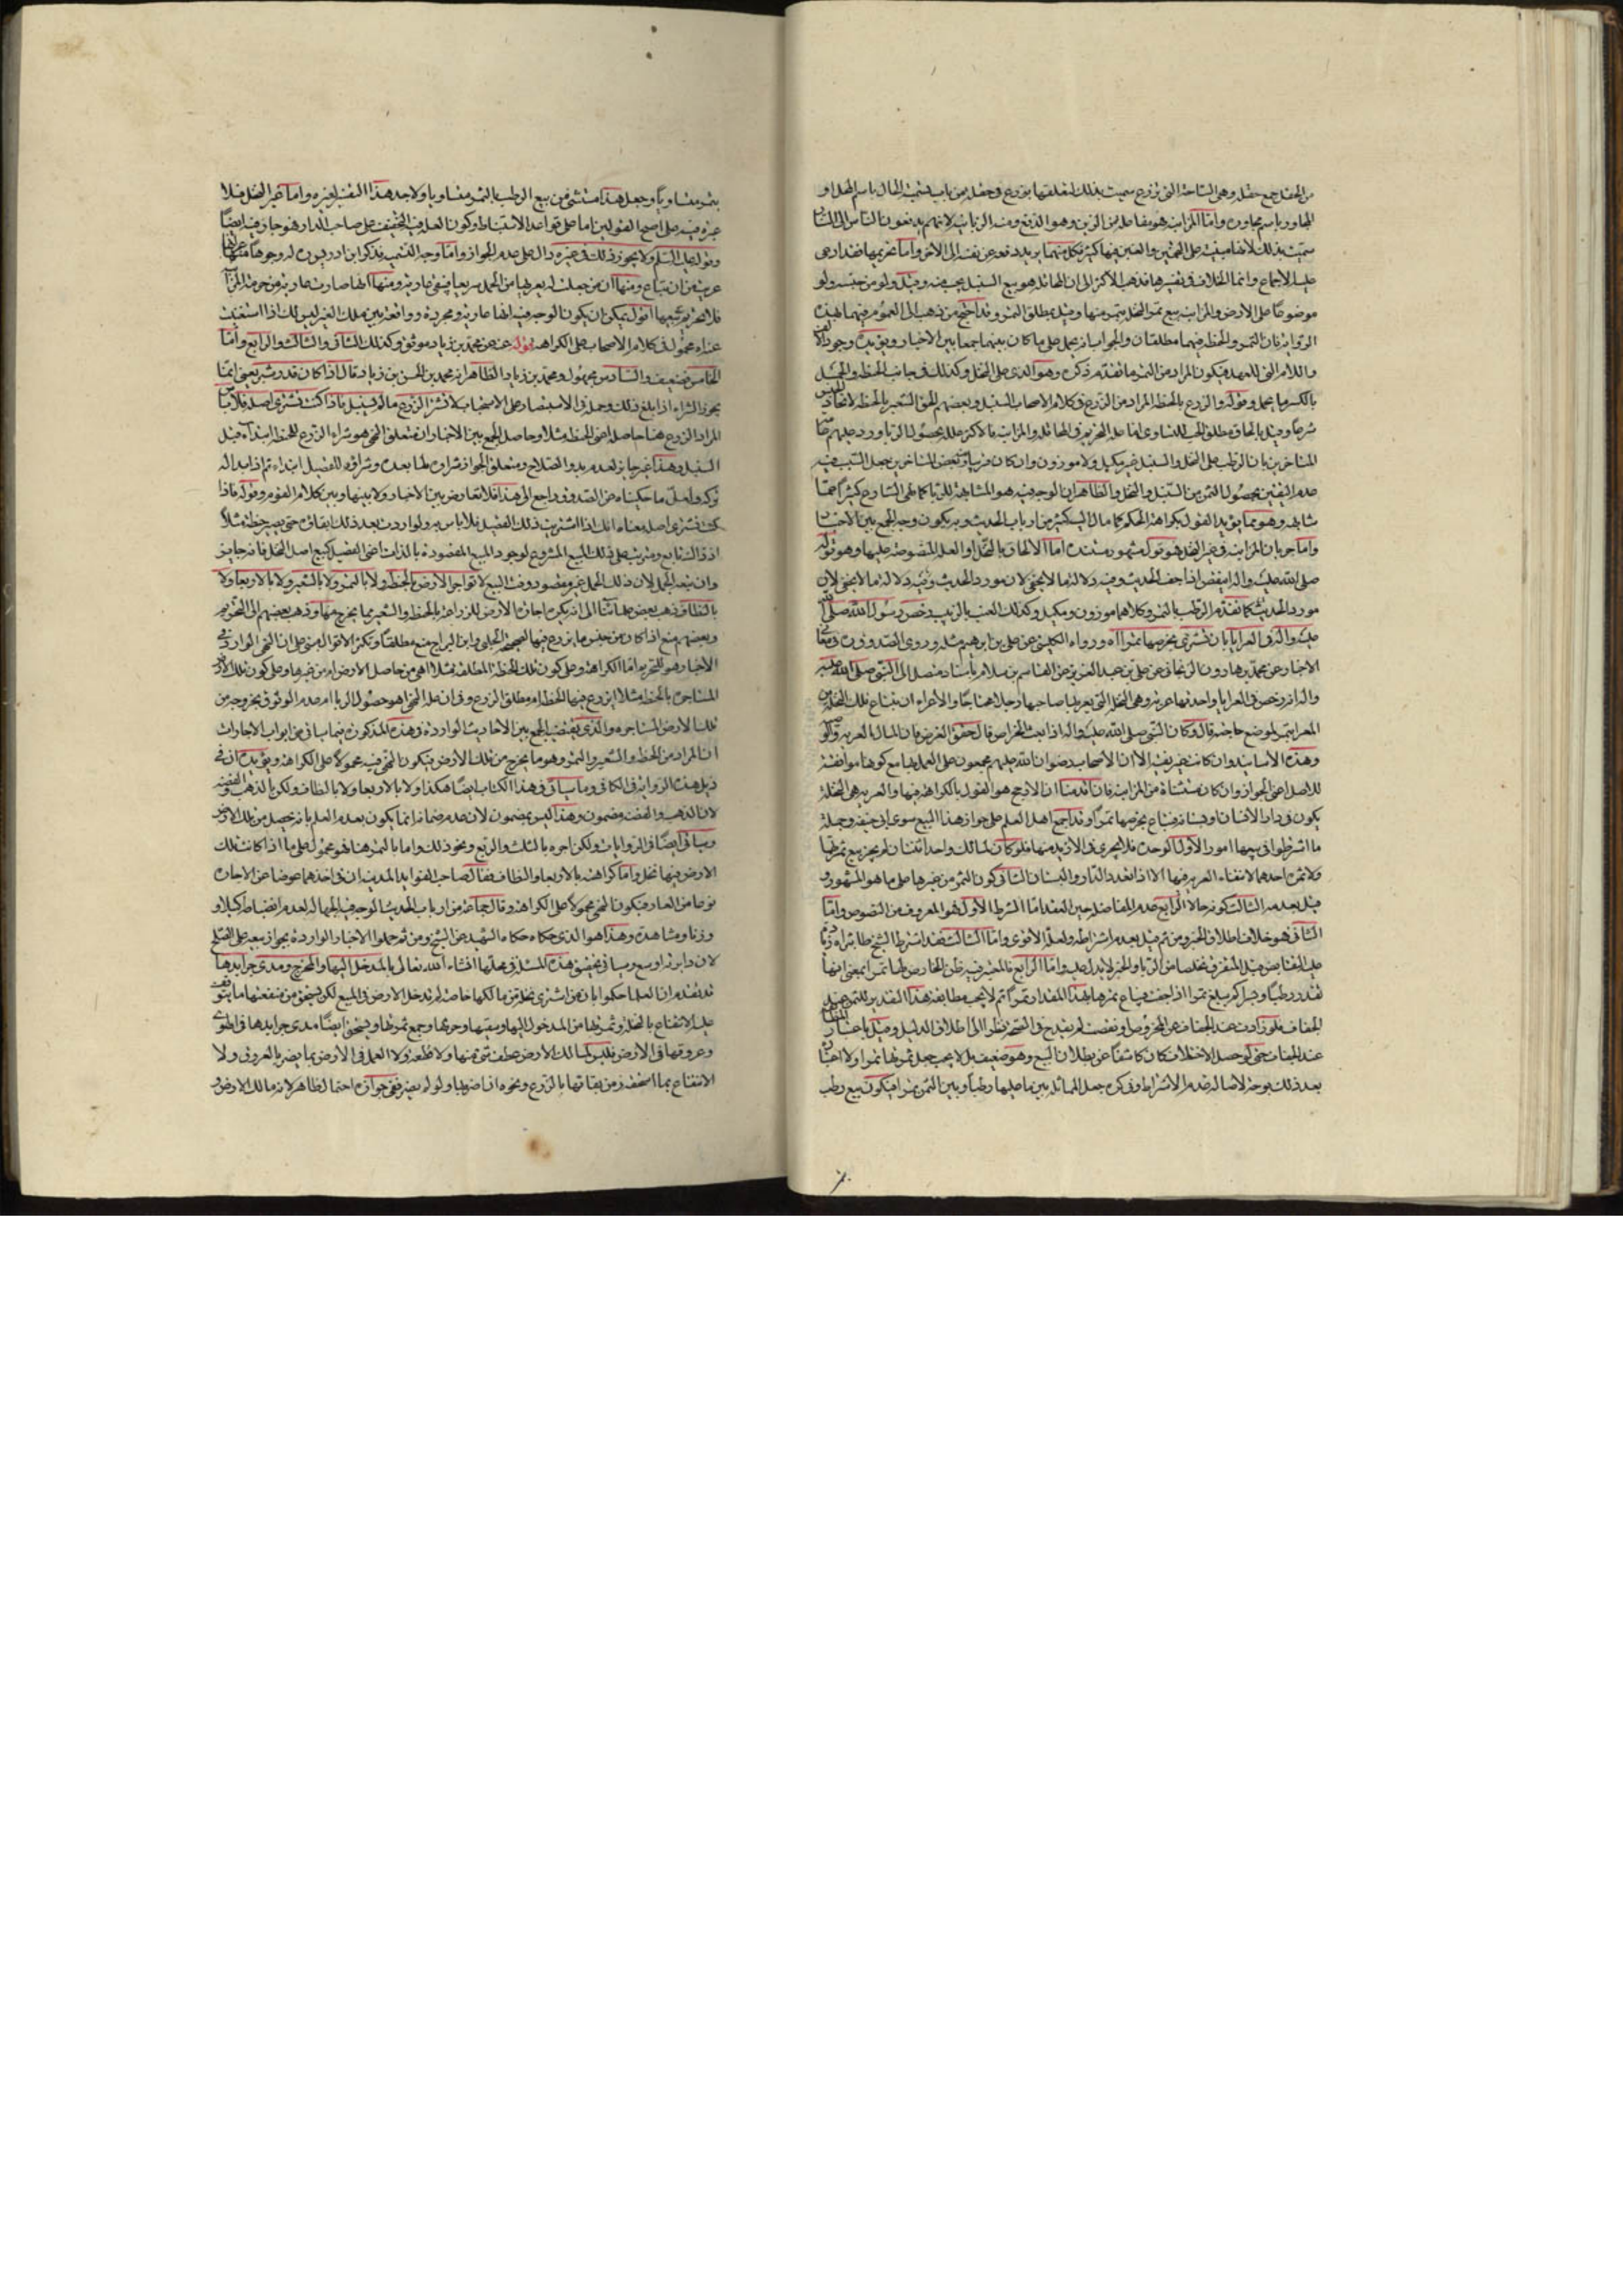 من الحقل جمع حقله وهى الساحة التى تزرع سميت بذلك لتعلقها بزرع فى حقل من باب تسمية الحال باسم المحل او
المجاور باسم مجاوره واما المزابنه فهو مفاعله من الزبن وهو الدفع ومنه الزبانيه لانهم يدفعون الناس الى النار
سميت بذلك لانها مبنيه على التخمين والغبن فيها كثير فكل منهما يريد دفعه عن نفسه الى الاخر واما تحريمها فقد ادعى
عليه الاجماع وانما الخلاف فى تفسيرها فذهب الاكثر الى ان المحاقله هو بيع السنبل بحب منه وقيل ولو من جنسه ولو
موضوعا على الارض والمزابنه بيع تمر النخل بتمر منها وقيل بمطلق التمر وقد احتج من ذهب الى العموم فيهما بهذه
الروايه فان التمر والحنطه فيهما مطلقتان والجواب انه يحمل على ما كان منهما جمعا بين الاخبار ويؤيده وجود الالف
واللام التى للعهد فيكون المراد من التمر ما تقدم ذكره وهو الذى على النخل وكذلك فى جانب الحنطه والحمل
بالكسر ما يحمل وقوله والزرع بالحنطه المراد من الزرع فى كلام الاصحاب السنبل وبعضهم الحق الشعير بالحنطه لاتحاد الجنس
شرعا وقيل بالحاق مطلق الحب للتساوى اما عله التحريم فى المحاقله والمزابنه فالاكثر علله بحصول الربا واورد عليهم
المتاخرين بان الرطب على النخل والسنبل غير مكيل ولا موزون وان كان فيه ربا وبعض المتاخرين جعل السبب فيه
عدم اليقين بحصول الثمن من السنبل والنخل والظاهر ان الوجه فيه هو المشابهة للربا كما نهى الشارع كثيرا عما
شابهه وهو مما يؤيد القول بكراهة الحكم كما مال اليه كثير من ارباب الحديث وبه يكون وجه الجمع بين الاخبار
واما جريان المزابنه فى غير النخل فهو قول مشهور مستنده اما الالحاق بالنخل او العله المنصوصه عليها وهو قوله
صلى الله عليه واله اينقص اذا جف الحديث وفيه دلاله ما لا يخفى لان مورد الحديث وفيه دلاله ما لا يخفى لان
مورد الحديث كما تقدم الرطب بالتمر وكلاهما موزون ومكيل وكذلك العنب بالزبيب رخص رسول الله صلى الله
عليه واله فى العرايا بان تشترى بخرصها تمرا اه ورواه الكلينى عن على بن ابرهيم مثله وروى الصدوق فى معانى
الاخبار عن محمد بن هارون الزنجانى عن على بن عبد العزيز عن القاسم بن سلام باسناد متصل الى النبى صلى الله عليه
واله انه رخص فى العرايا واحدتها عريه وهى النخله التى يعريها صاحبها رجلا محتاجا والاعراء ان يبتاع تلك النخله من
المعرا بتمر لموضع حاجته قال وكان النبى صلى الله عليه واله اذا بعث الخراص قال خففوا الخرص فان المال العريه والوصيه
وهذه الاسانيد وان كانت ضعيفه الا ان الاصحاب رضوان الله عليهم مجمعون على العمل بها مع كونها موافقه
للاصل اعنى الجواز وان كان مستثناة من المزابنه فان قدمنا ان الارجح هو القول بالكراهه فيها والعريه هى النخله
يكون فى دار الانسان او بستانه فيباع بخرصها تمرا وقد اجمع اهل العلم على جواز هذا البيع سوى ابى حنيفه وجمله
ما اشترطوا فى بيعها امور الاول الوحده فلا يجرى فى الازيد منها فلو كان لمالك واحد اثنتان لم يجز بيع ثمرتها
ولا ثمره احدهما لانتفاء العريه فيها الا اذا تعدد الدار والبستان الثانى كون الثمن من غيرها على ما هو المشهور و
قيل بعدمه الثالث كونه حالا الرابع عدم المفاضل حين العقد اما الشرط الاول فهو المعروف من النصوص واما
الثانى فهو خلاف اطلاق الخبر ومن ثم قيل بعدم اشتراطه ولعله الاقوى واما الثالث فقد اشترط الشيخ طاب ثراه
عليه القابض قبل التفرق تخلصا من الربا والخبر لا يدل عليه واما الرابع فالمعتبر فيه ظن الخارص لها تمرا بمعنى انها
تقدر رطبا وبسرا كم يبلغ تمرا اذا جفت فيباع بقدرها بهذا المقدار تمرا ثم لا يجب مطابقة هذا التقدير للتمر عند
الجفاف فلو زادت عند الجفاف عن المخروص او نقصت لم يقدح فى الصحه نظرا الى اطلاق الدليل وقيل باعتبار المطابقه
عند الجفاف حتى لو حصل الاختلاف كان كاشفا عن بطلان البيع وهو ضعيف بل لا يجب جعل ثمرتها تمرا ولا اعتبار
بعد ذلك بوجه لاصاله عدم الاشتراط وفى كره جعل المماثله بين ما عليها رطبا وبين الثمن تمرا فيكون بيع رطب
بتمر متساويا وجعل هذا مستثنى من بيع الرطب بالتمر متساويا ولاجد هذا القيد لغيره واما غير النخل فلا
عريه فيه على اصح القولين اما على قواعد الاستنباط وكون العله فيه التخفيف على صاحب الدار فهو جار فيه ايضا
وقوله عليه السلم ولا يجوز ذلك فى غيره دال على عدم الجواز واما وجه التسميه فذكر ابن ادريس له وجوها منها
عريت من ان تباع ومنها ان من جعلت له يعريها من الحمل سريعا فتبقى عاريه ومنها انها صارت عاريه من حرمة المزابنه
فلا تحريم بيعها اقول يمكن ان يكون الوجه فيه انها عاريه ومجرده وواقعه بين ملك الغير ليس لك اذا استغنت
عنه اه محمول فى كلام الاصحاب على الكراهه قوله عنه عن محمد بن زياد موثق وكذلك الثانى والثالث والرابع واما
الخامس فضعيف والسادس مجهول ومحمد بن زياد الظاهر انه محمد بن الحسن بن زياد قال اذا كان قدر شبر يعنى انما
يجوز الشراء اذا بلغ ذلك وحمله فى الاستبصار على الاستحباب لا تشتر الزرع ما لم يسنبل فاذا كنت تشترى اصله فلا باس
المراد الزرع هنا حاصله اعنى الحنطه مثلا وحاصل الجمع بين الاخبار ان متعلق النهى هو شراء الزرع للحنطه ابتداء قبل
السنبل وهذا غير جايز لعدم بدو الصلاح ومتعلق الجواز شراؤه لما بعده وشراؤه للقصيل ابتداء ثم اذا بدا له
تركه ولعل ما حكيناه عن الصدوق راجع الى هذا فلا تعارض بين الاخبار ولا بينها وبين كلام القوم وقوله فاذا
كنت تشترى اصله معناه انك اذا اشتريت ذلك القصيل فلا باس به ولو اردت بعد ذلك ابقاؤه حتى يصير حنطة مثلا
اذ ذاك تابع ومترتب على ذلك المبيع المشروع لوجود المبيع المقصوده بالذات اعنى القصيل كبيع اصل النخل فانه جايز
وان بعد الحمل لان ذلك الحمل غير مقصود وقت البيع لا تواجر الارض بالحنطه ولا بالتمر ولا بالشعير ولا بالاربعاء ولا
بالنطاف ذهب بعض علمائنا الى انه يكره اجارة الارض للزراعه بالحنطه والشعير مما يخرج منها وذهب بعضهم الى التحريم
وبعضهم منع اذا كان من جنس ما يزرع فيها لصحيحة الحلبى وابن البراج منع مطلقا وتكثر الاقوال مبنى على ان النهى الوارد فى
الاخبار هو للتحريم اما الكراهه وعلى كون تلك الحنطه المطلقه مثلا اهى من حاصل الارض ام من غيرها وعلى كون تلك الارض
المستاجره بالحنطه مثلا ايزرع فيها الحنطه ام مطلق الزرع وفى ان علة النهى اهو حصول الربا ام عدم الوثوق بخروجه من
تلك الارض المستاجره والذى يقتضيه الجمع بين الاحاديث الوارده وهذه المذكوره فيما ياتى من ابواب الاجارات
ان المراد من الحنطه والشعير والتمر وهو ما يخرج من تلك الارض فيكون النهى فيه محمولا على الكراهه ويؤيده ان فى
ذيل هذه الروايه فى الكافى وما سياتى فى هذا الكتاب ايضا هكذا ولا بالاربعاء ولا بالنطاف ولكن بالذهب والفضه
لان الذهب والفضه مضمون وهذا ليس بمضمون لان عدم ضمانه انما يكون بعدم العلم بانه يحصل من تلك الارض
وسياتى ايضا فى الروايات ولكن اجره بالثلث والربع ونحو ذلك واما بالتمر هنا فهو محمول على ما اذا كانت تلك
الارض فيها نخل واما كراهته بالاربعاء والنطاف فقال صاحب الفوايد المدنيه ان فى اخذهما عوضا عن الاجاره
نوعا من العار فيكون النهى محمولا على الكراهه وقال جماعه من ارباب الحديث الوجه فيه الجهاله لعدم انضباطه كيلا و
وزنا ومشاهدة وهذا هو الذى حكاه حكاه الشهيد عن الشيخ ومن ثم حملوا الاخبار الوارده بجواز بيعه على الصلح
لان دايرته اوسع وسياتى تحقيق هذه المسئله فى محلها انشاء الله تعالى بالمدخل اليها والمخرج ومدى جرايدها
قد تقدم ان العلما حكموا بان من اشترى نخله من مالكها خاصه لم تدخل الارض فى المبيع لكن يستحق من منفعتها ما يتوقف
عليه الانتفاع بالنخله وثمرتها من المدخول اليها وسقيها وحرثها وجمع ثمرتها ويستحق ايضا مدى جرايدها فى الهوى
وعروقها فى الارض فليس لمالك الارض عطف شئ منها ولا قطعه ولا العمل فى الارض بما يضر بالعروق ولا
الانتفاع بما استحقه من بقائها بالزرع ونحوه ان اضر بها ولو لم يضر ففى جوازه احتمال ظاهر لانه مالك الارض و